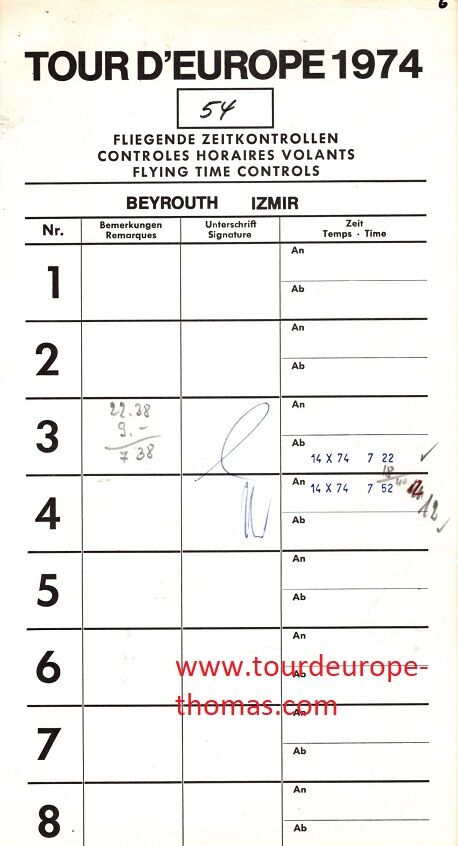 6
TOUR D'EUROPE 1974
54
FLIEGENDE ZEITKONTROLLEN
CONTROLES HORAIRES VOLANTS
FLYING TIME CONTROLS
BEYROUTH IZMIR
Nr. Bemerkungen Unterschrift Zeit
Remarques Signature Temps · Time
1 An
Ab
2 An
Ab
3 22.38 An
9.-
7 38 Ab
14 X 74 7 22
4 An 14 X 74 7 52
12
Ab
5 An
Ab
6 An
www.tourdeurope-
Ab
thomas.com
7 An
Ab
8 An
Ab